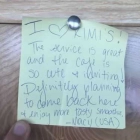 I ♡ KIMIS!
The service is great
and the cafe is
so cute & inviting!
Definitely planning
to come back here
& enjoy more tasty smoothies
(USA)